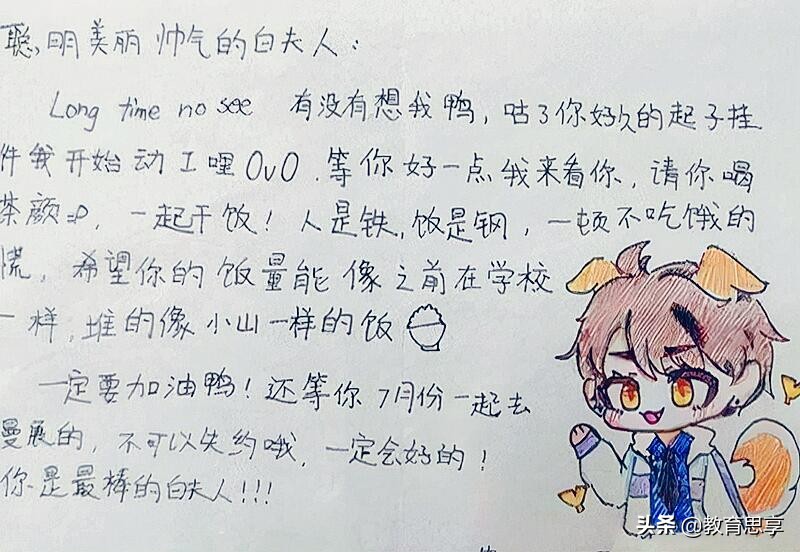 聪明美丽帅气的白夫人:
Long time no see 有没有想我鸭, 咕了你好久的起子挂
件我开始动工哩OvO.等你好一点我来看你,请你喝
茶颜=D, 一起干饭! 人是铁,饭是钢, 一顿不吃饿的
慌, 希望你的饭量能像之前在学校
一样,堆的像小山一样的饭
一定要加油鸭! 还等你7月份一起去
漫展的, 不可以失约哦, 一定会好的!
你是最棒的白夫人!!!
头条 @教育思享